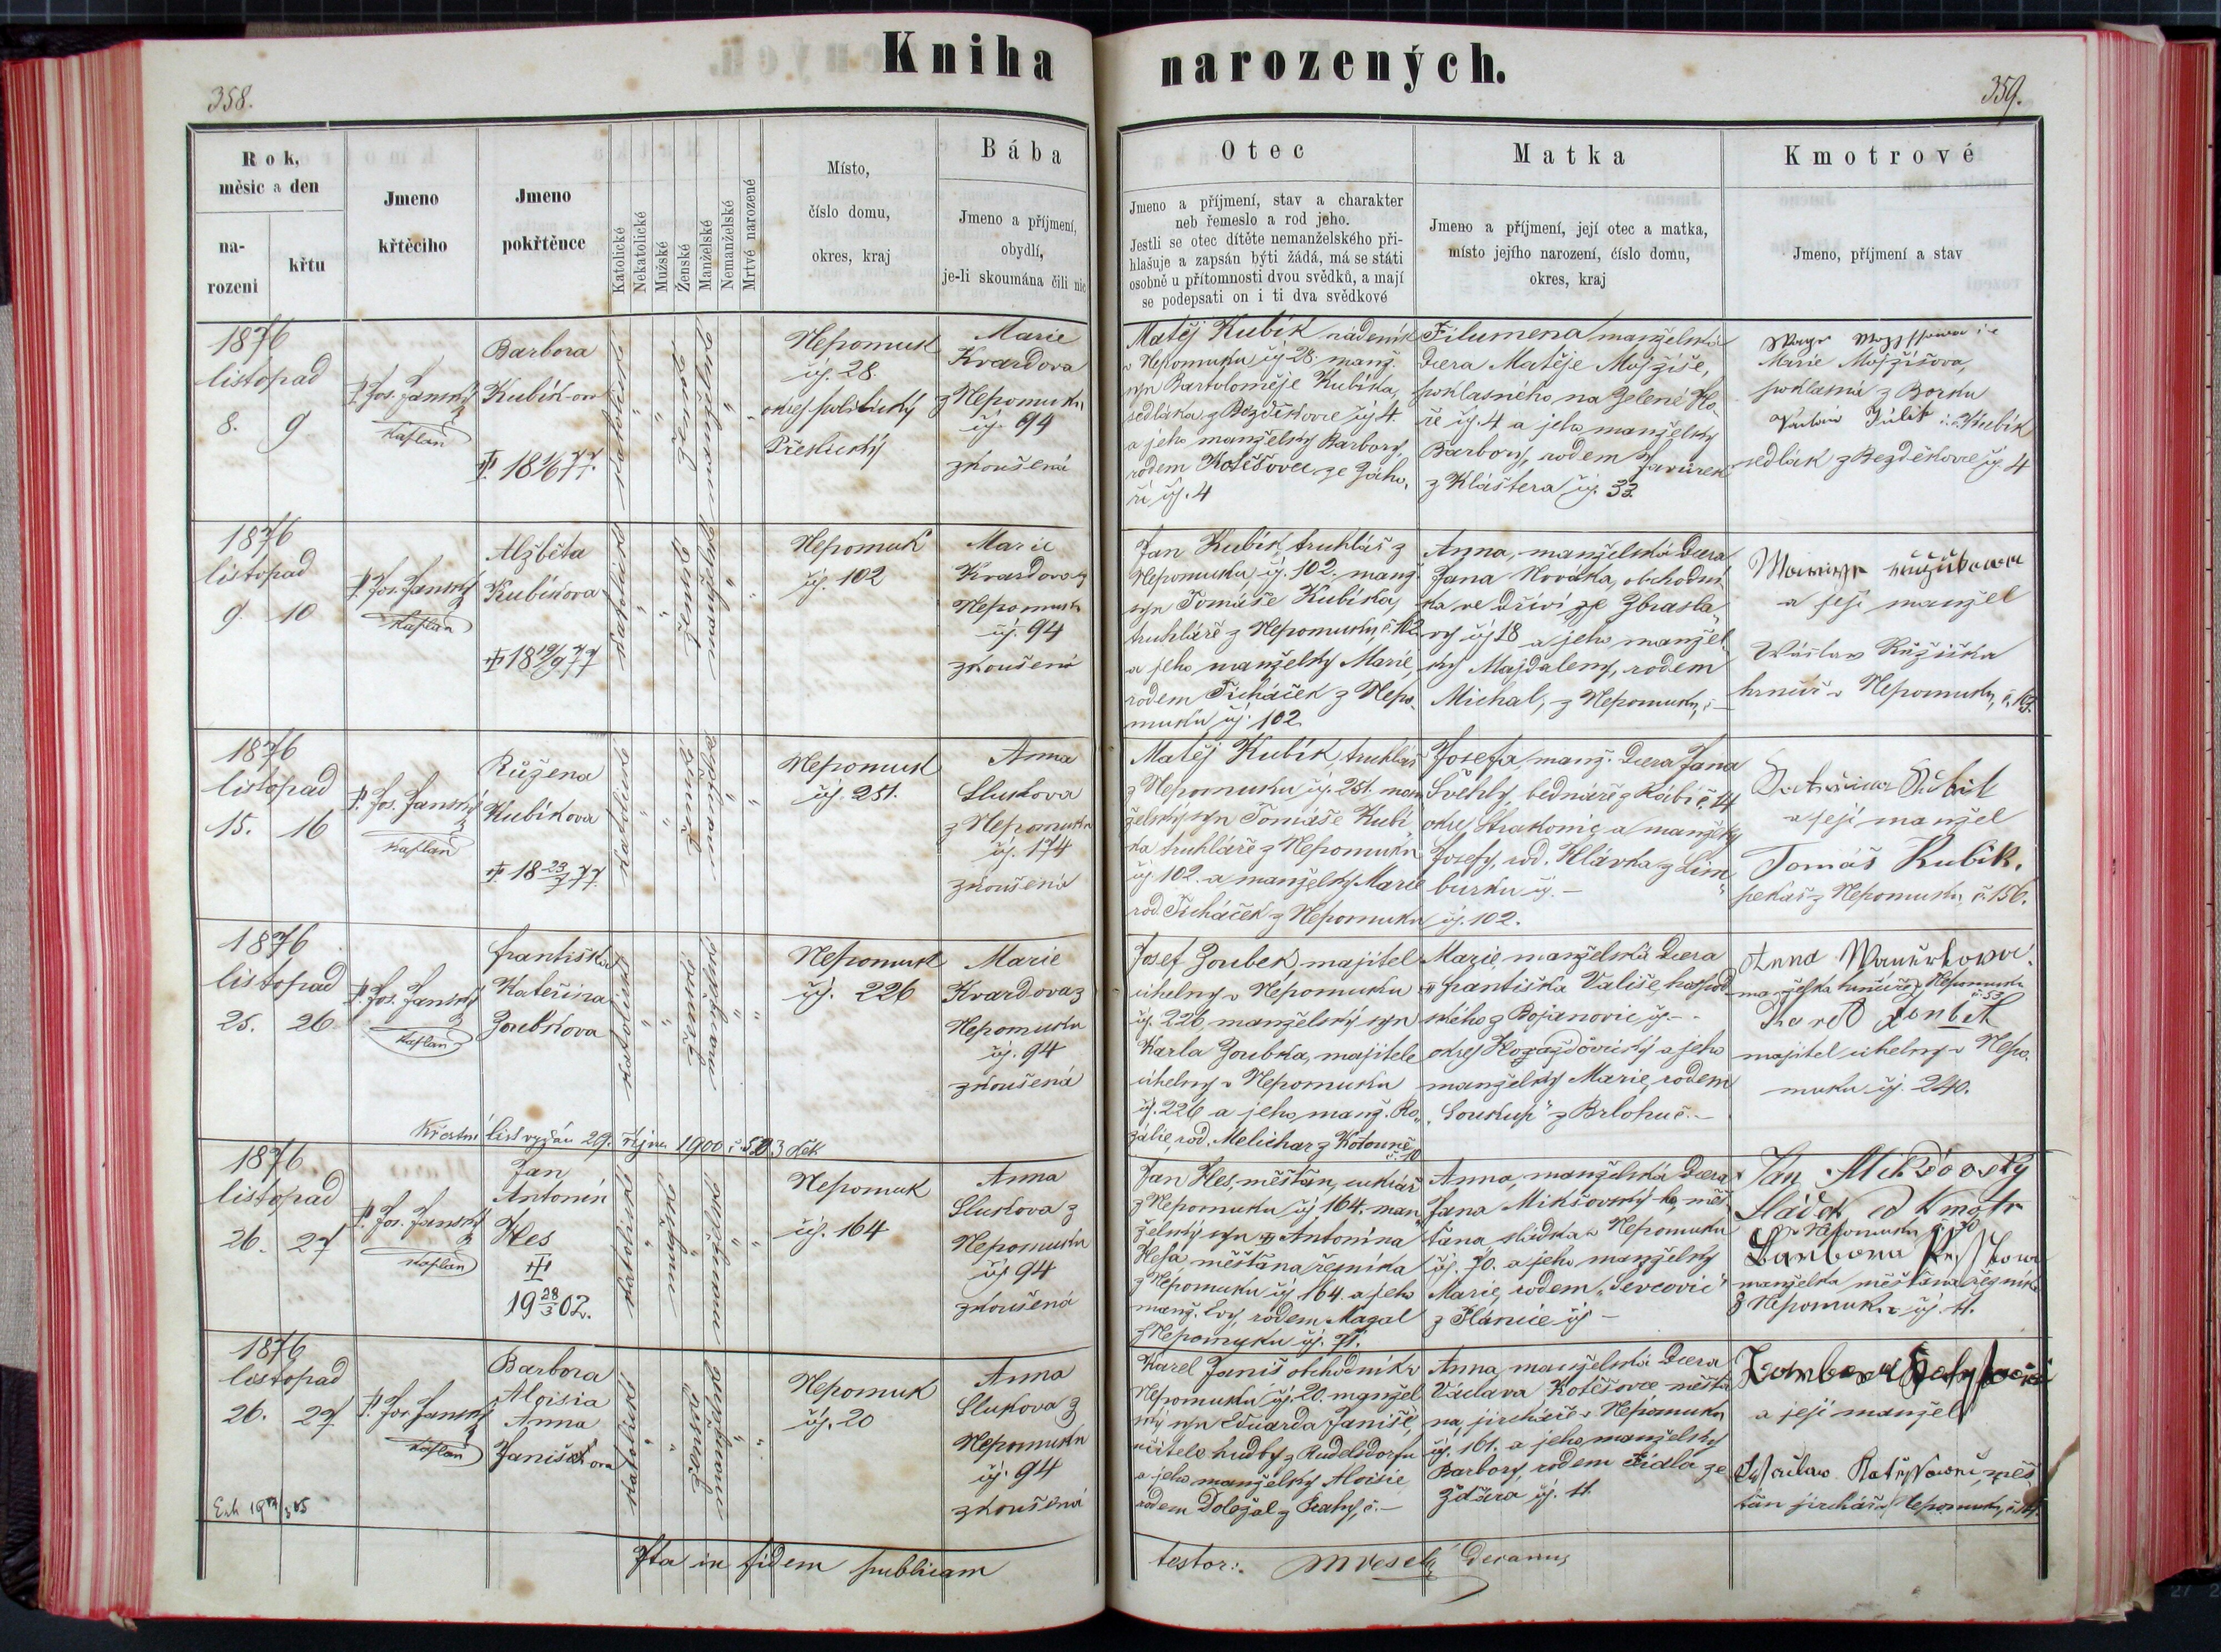 Kniha narozených.
358.
359.
Rok,
měsíc a den
na-
rozeni
křtu
Jmeno
křtěcího
Jmeno
pokřtěnce
Katolické
Nekatolické
Mužské
Ženské
Manželské
Nemanželské
Mrtvé narozené
Místo,
číslo domu,
okres, kraj
Bába
Jmeno a příjmení,
obydlí,
je-li skoumána čili nic
Otec
Jmeno a příjmení, stav a charakter
neb řemeslo a rod jeho.
Jestli se otec dítěte nemanželského při-
hlašuje a zapsán býti žádá, má se státi
osobně u přítomnosti dvou svědků, a mají
se podepsati on i ti dva svědkové
Matka
Jmeno a příjmení, její otec a matka,
místo jejího narození, číslo domu,
okres, kraj
Kmotrové
Jmeno, příjmení a stav
1876
listopad
8. 9
P. Jos. Janský
kaplan
Barbora
Kubík-ova
18 77.
katolické
ženské
manželské
Nepomuk
čj. 28.
okres politický
Přeštický
Marie
Kvardova
z Nepomuku
čj. 94
zkoušená
Matěj Kubík nádeník
v Nepomuku čj. 28. manž.
syn Bartoloměje Kubíka,
sedláka z Bezděkovce čj. 4.
a jeho manželky Barbory,
rodem Kotěšovec ze Záho-
ří čj. 4
Filumena manželská
dcera Matěje Mojžíše,
poklasného na Zelené Ho-
ře čj. 4 a jeho manželky
Barbory, rodem Javůrek
z Kláštera čj. 33.
Marie Mojžíšova,
poklasná z Borku
Kubík
sedlák z Bezděkovce čj. 4
1876
listopad
9. 10
P. Jos. Janský
kaplan
Alžběta
Kubíkova
18 19/9 77
katolické
ženské
manželské
Nepomuk
čj. 102
Marie
Kvardova z
Nepomuku
čj. 94
zkoušená
Jan Kubík, truhlář z
Nepomuku čj. 102. manž.
syn Tomáše Kubíka,
truhláře z Nepomuku, č. 102
a jeho manželky Marie,
rodem Ticháček z Nepo-
muku čj. 102.
Anna, manželská dcera
Jana Nováka, obchodní-
ka ve dříví ze Zbrasla-
vy čj 18 a jeho manžel-
ky Majdaleny, rodem
Michal, z Nepomuku, č —
a její manžel
Wáslav Růžička
hrnčíř v Nepomuku,
1876
listopad
15. 16
P. Jos. Janský
kaplan
Růžena
Kubíkova
18 23/7 77.
katolické
ženské
manželské
Nepomuk
čj. 251.
Anna
Slukova
z Nepomuku
čj. 174
zkoušená
Matěj Kubík, truhlář
z Nepomuku čj. 251. man-
želský syn Tomáše Kubí-
ka truhláře z Nepomuku
čj. 102. a manželky Marie
rod. Ticháček z Nepomuku čj. 102.
Josefa, manž. dcera Jana
Švehly, bednáře z Rábí č. 14
okres Strakonic a manželky
Josefy, rod. Hlávka z Lim-
burku čj. —
a její manžel
Tomáš Kubík.
pekař z Nepomuku, č. 156.
1876
listopad
25. 26
P. Jos. Janský
kaplan
Františka
Kateřina
Zoubkova
katolické
ženské
manželské
Nepomuk
čj. 226
Marie
Kvardova z
Nepomuku
čj. 94
zkoušená
Josef Zoubek, majitel
cihelny v Nepomuku
čj. 226, manželský syn
Karla Zoubka, majitele
cihelny v Nepomuku
čj. 226 a jeho manž. Ro-
zálie, rod. Melichar z Kotouně
č. 10
Marie, manželská dcera
Františka Vališe, hospod-
ského z Bojanovic čj —.
okres Horažďovický a jeho
manželky Marie, rodem
„Soukup“ z Brlohu č. —
Anna
manželka hrnčíře z Nepomuku
č. 53
Karel Zoubek
majitel cihelny v Nepo-
muku čj. 240.
Křestní list vydán 29. října 1900 č. 503 děk
1876
listopad
26. 27
P. Jos. Janský
kaplan
Jan
Antonín
Hes
19 28/3 02.
katolické
mužské
manželské
Nepomuk
čj. 164
Anna
Slukova z
Nepomuku
čj. 94
zkoušená
Jan Hes, měšťan, cukrář
z Nepomuku čj 164. man-
želský syn Antonína
Hesa, měšťana řezníka
z Nepomuku čj 164. a jeho
manž. Evy, rodem Magal
z Nepomuku čj. 71.
Anna, manželská dcera
Jana Mikšovský-ho, měš-
ťana sládka z Nepomuku
čj. 70. a jeho manželky
Marie, rodem „Sevcovic“
z Plánice čj —
Jan Mikšovský
Sládek co Kmotr
v Nepomuku
manželka měšťana řezníka
z Nepomuku čj. 11.
1876
listopad
26. 27
P. Jos. Janský
kaplan
Barbora
Aloisia
Anna
Janiš ova
katolické
ženské
manželské
Nepomuk
čj. 20
Anna
Slukova z
Nepomuku
čj. 94
zkoušená
Karel Janiš obchodník v
Nepomuku čj. 20. manžel-
ský syn Eduarda Janiše,
učitele hudby z Rudelsdorfu
a jeho manželky Aloisie
rodem Doležal z Prahy, č. —
Anna, manželská dcera
Václava Kotěšovce, měšťa-
na, jircháře v Nepomuku
čj. 161. a jeho manželky
Barbory, rodem Fiala ze
Žďára čj. 11.
a její manžel
měš-
ťan jirchář z Nepomuku,
Ita in fidem publicam
testor:. MVeselý Decanus